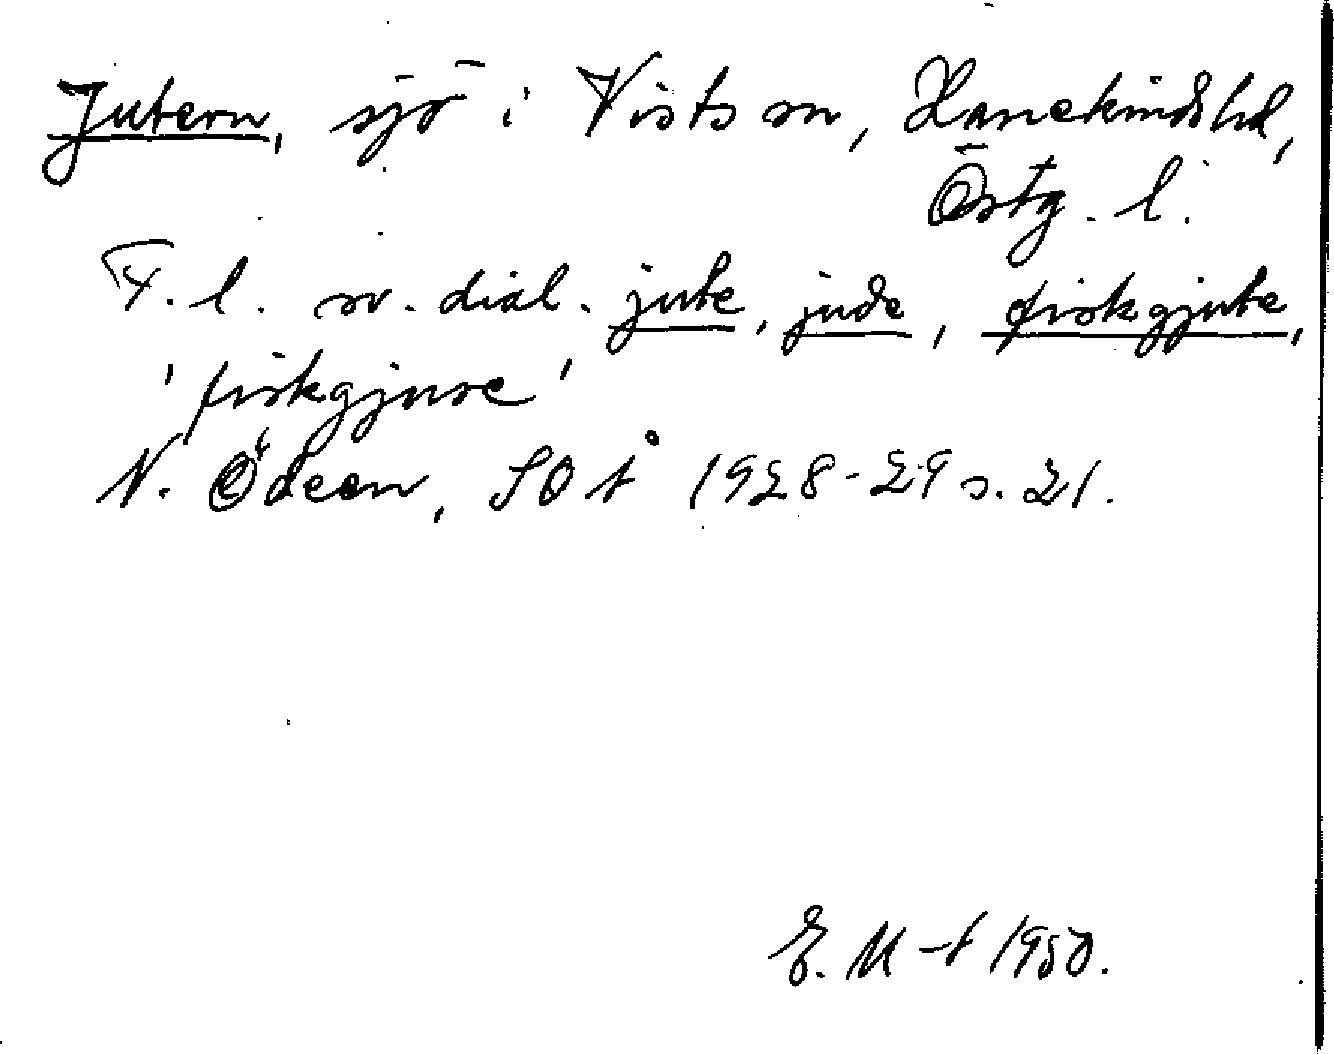 Jutern, sjö i Vists sn, Hanekinds hd,
Östg. l.
T. l. sv. dial. jute, jude, fiskgjute,
'fiskgjuse'
N. Ödeen, SOÅ 1928-29 s. 21.
E. M-t 1950.